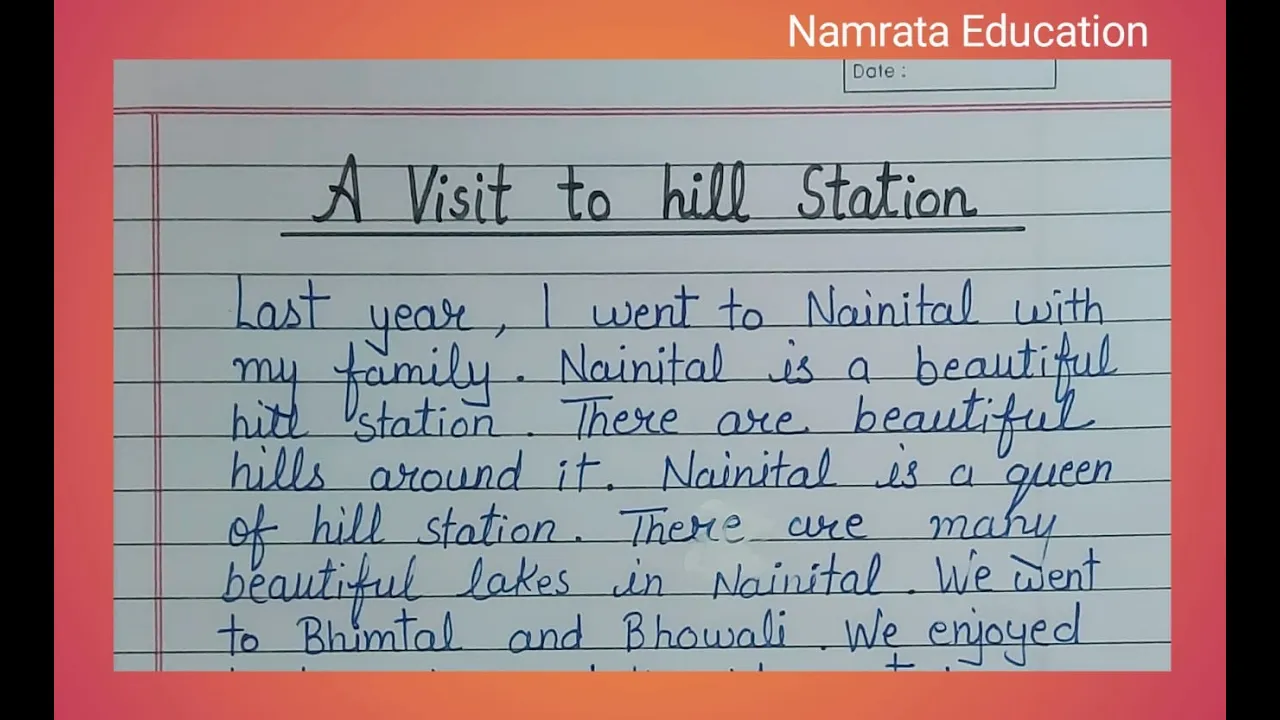 Namrata Education
Date :
A Visit to hill Station
Last year, I went to Nainital with
my family. Nainital is a beautiful
hill station. There are beautiful
hills around it. Nainital is a queen
of hill station. There are many
beautiful lakes in Nainital. We went
to Bhimtal and Bhowali. We enjoyed